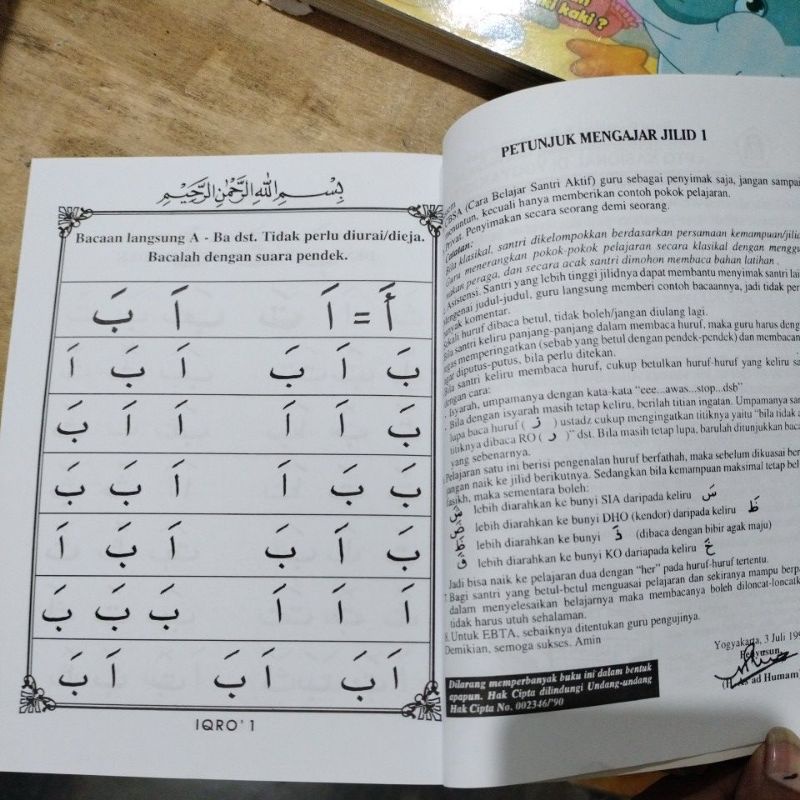 بِسْمِ اللهِ الرَّحْمٰنِ الرَّحِيْمِ
Bacaan langsung A - Ba dst. Tidak perlu diurai/dieja.
Bacalah dengan suara pendek.
أَ = اَ اَ بَ
بَ اَ بَ اَ بَ اَ
بَ اَ اَ اَ اَ بَ
بَ بَ اَ اَ بَ بَ
بَ اَ بَ اَ بَ اَ
اَ اَ اَ بَ بَ بَ
اَ بَ اَ بَ اَ بَ
IQRO' 1
kaki ?
PETUNJUK MENGAJAR JILID 1
(Cara Belajar Santri Aktif) guru sebagai penyimak saja, jangan sampai
kecuali hanya memberikan contoh pokok pelajaran.
Privat. Penyimakan secara seorang demi seorang.
Catatan:
Bila klasikal, santri dikelompokkan berdasarkan persamaan kemampuan/jilid
Guru menerangkan pokok-pokok pelajaran secara klasikal dengan
peraga, dan secara acak santri dimohon membaca bahan latihan.
Asistensi. Santri yang lebih tinggi jilidnya dapat membantu menyimak santri
Mengenai judul-judul, guru langsung memberi contoh bacaannya, jadi tidak
komentar.
huruf dibaca betul, tidak boleh/jangan diulang lagi.
Bila santri keliru panjang-panjang dalam membaca huruf, maka guru harus
memperingatkan (sebab yang betul dengan pendek-pendek) dan
diputus-putus, bila perlu ditekan.
Bila santri keliru membaca huruf, cukup betulkan huruf-huruf yang keliru
dengan cara:
Isyarah, umpamanya dengan kata-kata "eee...awas...stop...dsb"
Bila dengan isyarah masih tetap keliru, berilah titian ingatan. Umpamanya
lupa baca huruf ( زَ ) ustadz cukup mengingatkan titiknya yaitu "bila tidak
titiknya dibaca RO ( رَ )" dst. Bila masih tetap lupa, barulah ditunjukkan
yang sebenarnya.
Pelajaran satu ini berisi pengenalan huruf berfathah, maka sebelum dikuasai
jangan naik ke jilid berikutnya. Sedangkan bila kemampuan maksimal tetap
fasikh, maka sementara boleh:
lebih diarahkan ke bunyi SIA daripada keliru سَ
lebih diarahkan ke bunyi DHO (kendor) daripada keliru
lebih diarahkan ke bunyi (dibaca dengan bibir agak maju)
lebih diarahkan ke bunyi KO dariapada keliru خَ
Jadi bisa naik ke pelajaran dua dengan "her" pada huruf-huruf tertentu.
7. Bagi santri yang betul-betul menguasai pelajaran dan sekiranya mampu
dalam menyelesaikan belajarnya maka membacanya boleh
tidak harus utuh sehalaman.
8. Untuk EBTA, sebaiknya ditentukan guru pengujinya.
Demikian, semoga sukses. Amin
Yogyakarta, 3 Juli
Penyusun
Dilarang memperbanyak buku ini dalam bentuk
apapun. Hak Cipta dilindungi Undang-undang
Hak Cipta No. 002346/'90